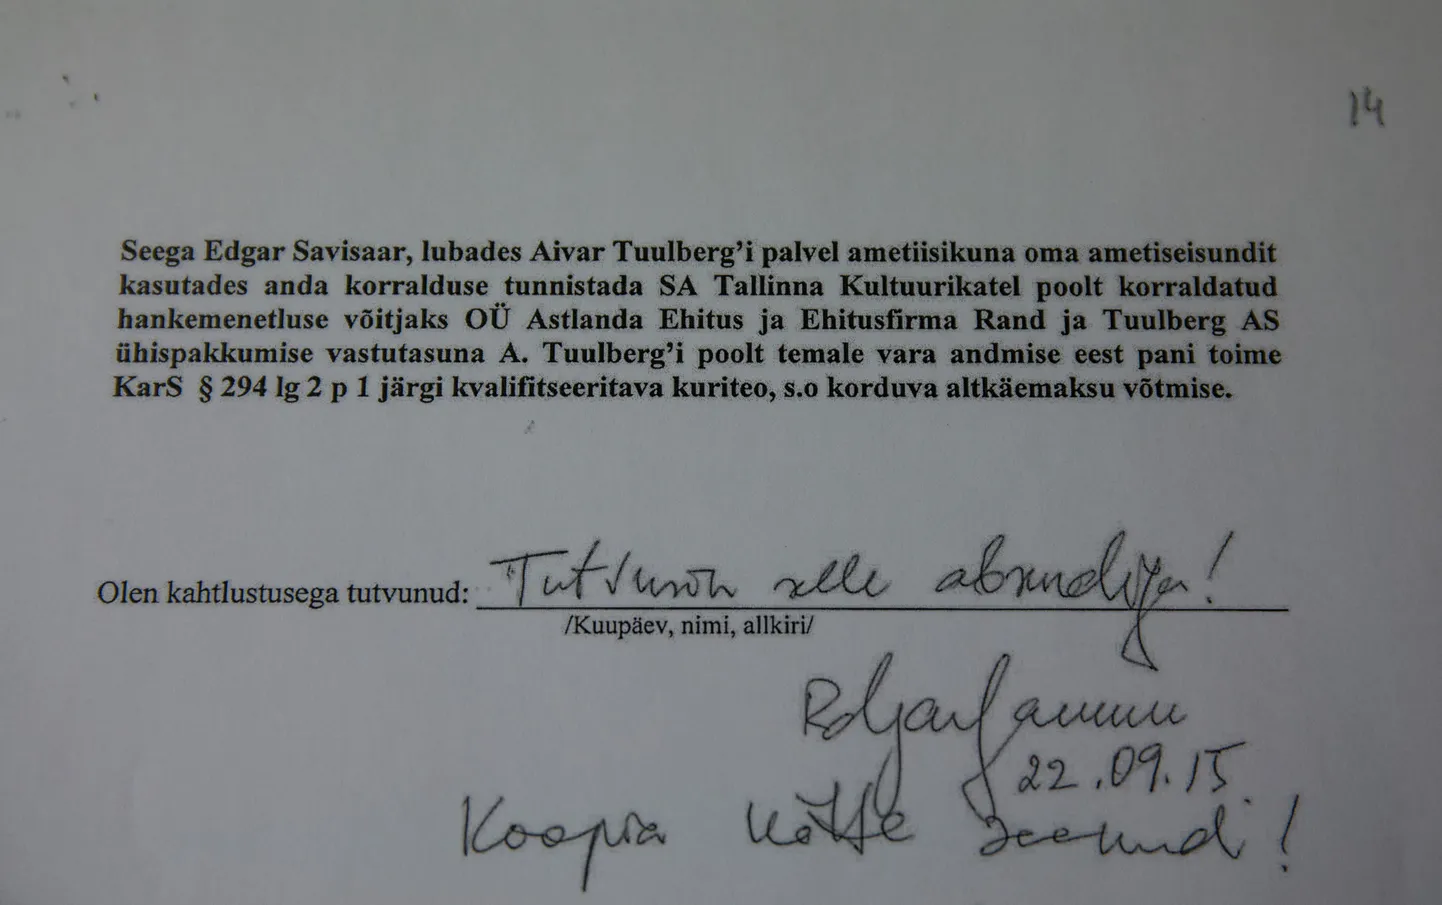 14
Seega Edgar Savisaar, lubades Aivar Tuulberg’i palvel ametiisikuna oma ametiseisundit
kasutades anda korralduse tunnistada SA Tallinna Kultuurikatel poolt korraldatud
hankemenetluse võitjaks OÜ Astlanda Ehitus ja Ehitusfirma Rand ja Tuulberg AS
ühispakkumise vastutasuna A. Tuulberg’i poolt temale vara andmise eest pani toime
KarS § 294 lg 2 p 1 järgi kvalifitseeritava kuriteo, s.o korduva altkäemaksu võtmise.
Olen kahtlustusega tutvunud: Tutvusin selle absurdiga!
/Kuupäev, nimi, allkiri/
22.09.15.
Koopia kätte saanud!